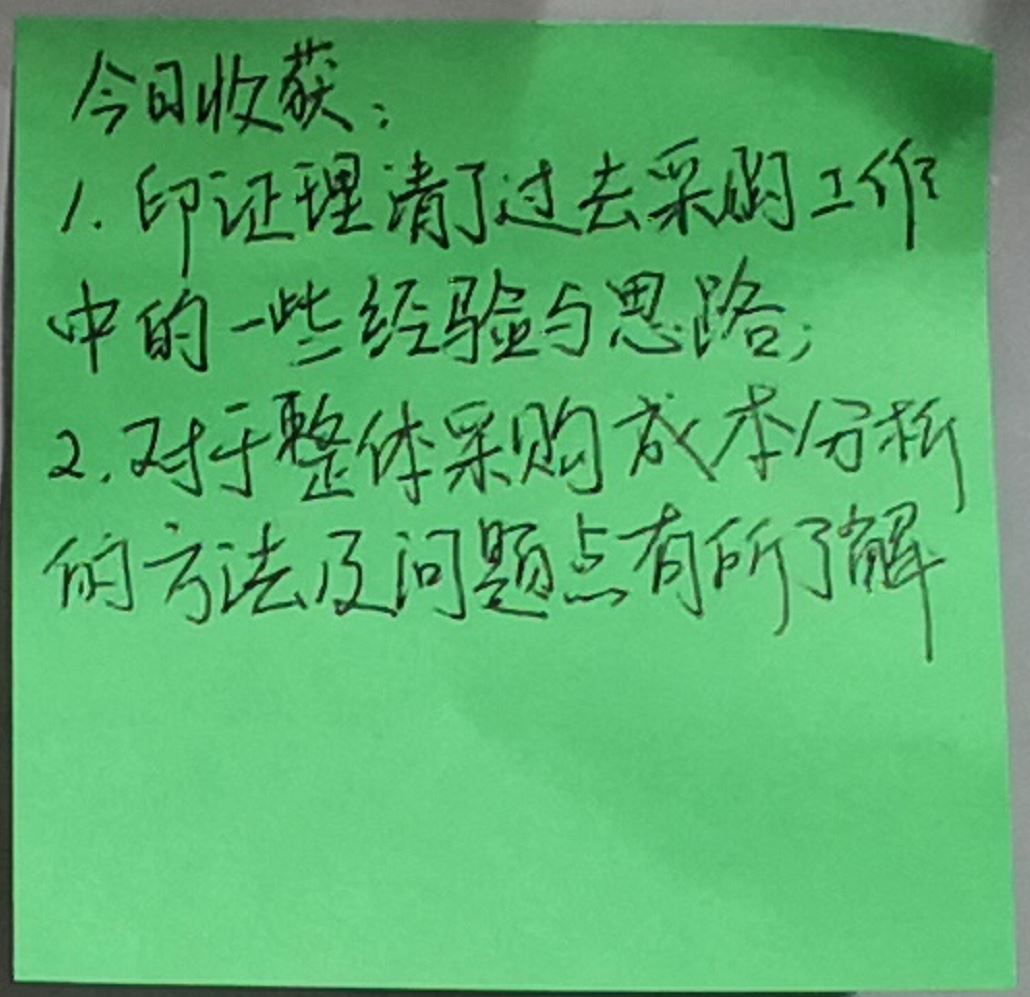 今日收获：
1.印证理清了过去采购工作
中的一些经验与思路；
2.对于整体采购成本分析
的方法及问题点有所了解